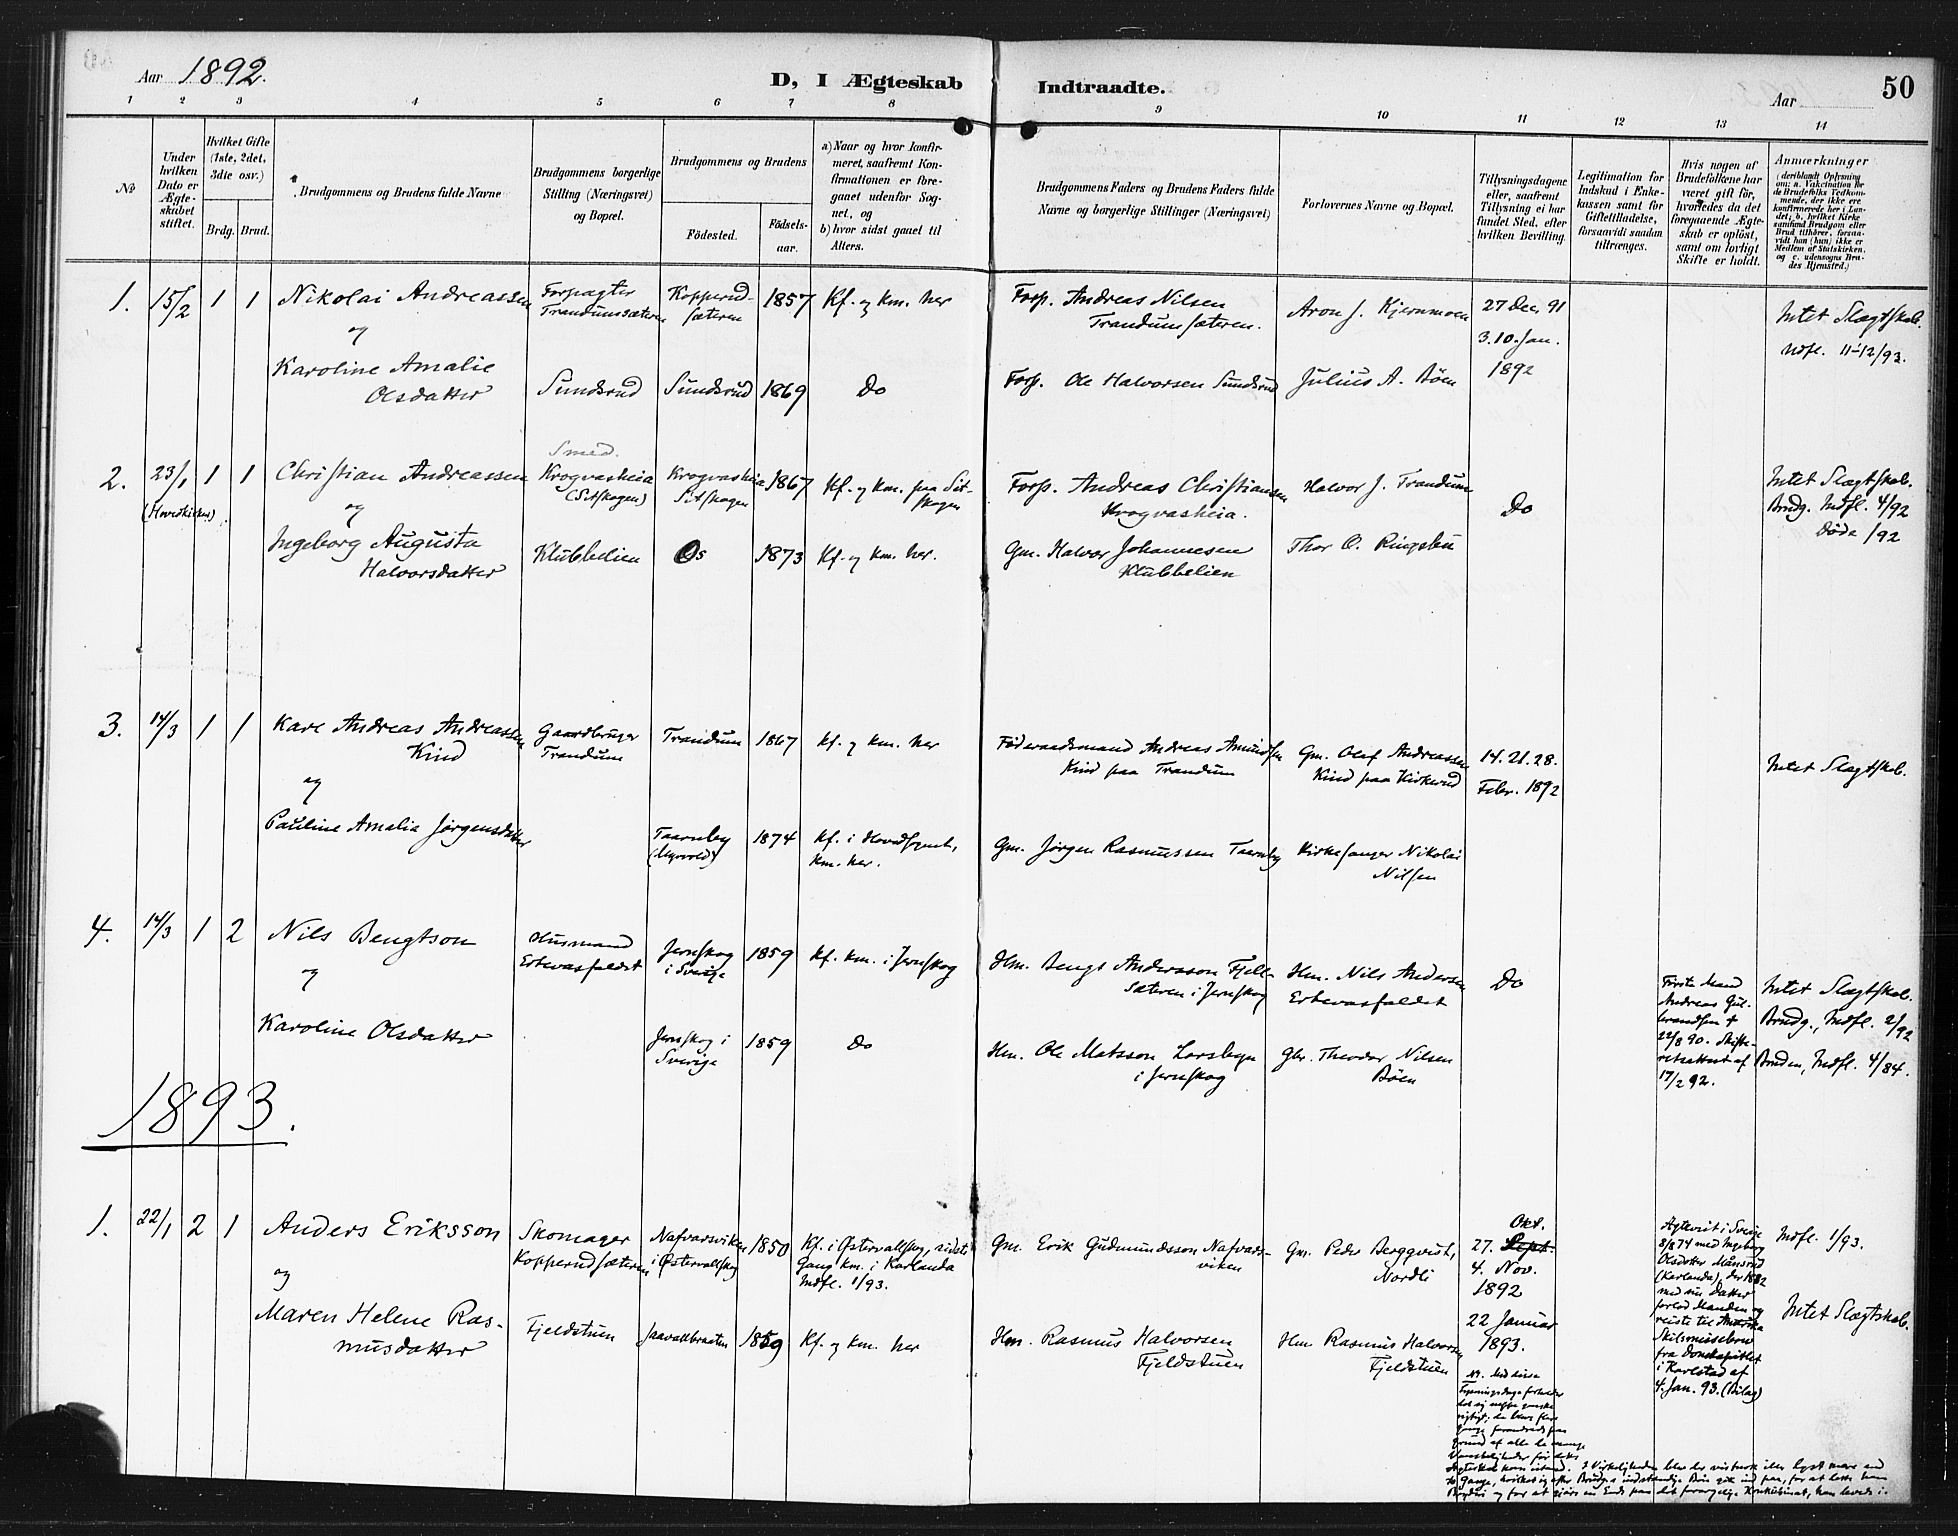 Aar 1892.
D, I Ægteskab Indtraadte.
Aar
50
1 2 3 4 5 6 7 8 9 10 11 12 13 14
No
Under hvilken Dato er Ægteskabet stiftet.
Hvilket Gifte (1ste, 2det, 3die osv.)
Brdg. Brud.
Brudgommens og Brudens fulde Navne
Brudgommens borgerlige Stilling (Næringsvei) og Bopæl.
Brudgommens og Brudens
Fødested.
Fødselsaar.
a) Naar og hvor konfirmeret, saafremt Konfirmationen er foregaaet udenfor Sognet, og
b) hvor sidst gaaet til Alters.
Brudgommens Faders og Brudens Faders fulde Navne og borgerlige Stillinger (Næringsvei)
Forlovernes Navne og Bopæl.
Tillysningsdagene eller, saafremt Tillysning ei har fundet Sted, efter hvilken Bevilling.
Legitimation for Indskud i Enkekassen samt for Giftetilladelse, forsaavidt saadan tiltrænges.
Hvis nogen af Brudefolkene har været gift før, hvorledes da det foregaaende Ægteskab er opløst, samt om lovligt Skifte er holdt.
Anmærkninger
(deriblandt Oplysning om: a. Vakcination for de Brudefolks Vedkommende, der ikke ere konfirmerede her i Landet; b. hvilket Kirkesamfund Brudgom eller Brud tilhører, forsaavidt han (hun) ikke er Medlem af Statskirken, og c. udensogns Brudes Hjemsted.)
1. 15/2 1 1 Nikolai Andreassen
Forpagter
Trandumsæteren
Kopperud-
sæteren
1857 Kf. og km. her
Forp. Andreas Nilsen
Trandumsæteren.
Aron J. Kjernmoen
27 Dec. 91
3.10. Jan.
1892
Intet Slægtskab.
Indfl. 11-12/93.
og
Karoline Amalie
Olsdatter
Sundsrud Sundsrud 1869 Do
Forp. Ole Halvorsen Sundsrud
Julius A. Böen
2. 23/1 1 1 Christian Andreassen
(Hovedkirken)
Smed.
Krogvasheia
(Setskogen)
Krogvasheia
Setskogen
1867 Kf. og km. paa Set-
skogen
Forp. Andreas Christiansen
Krogvasheia.
Halvor J. Trandum
Do
Intet Slægtskab.
Brudg. Indfl. 4/92
Døde /92
og
Ingeborg Augusta
Halvorsdatter
Klubbelien Os 1873 Kf. og km. her.
Gm. Halvor Johannesen
Klubbelien
Thor O. Ringsbu
3. 14/3 1 1 Karl Andreas Andreassen
Kind
Gaardbruger
Trandum
Trandum 1867 Kf. og km. her
Föderaadsmand Andreas Amundsen
Kind paa Trandum
Gm. Olaf Andreassen
Kind paa Kirkerud
14. 21. 28.
Febr. 1892
Intet Slægtskab.
og
Pauline Amalia Jørgensdatter
Taarnby
1874 Kf. i Hovedsognet,
km. her.
Gm. Jørgen Rasmussen Taarnby
Kirkesanger Nikolai
Nilsen
4. 14/3 1 2 Nils Bengtson
Husmand
Ertevasfaldet
Jernskog
i Sverige
1859 Kf. km. i Jernskog
Hm. Bengt Andersson Fjell-
sæteren i Jernskog
Hm. Nils Andersen
Ertevasfaldet
Do
Første Mand
Andreas Gul-
brandsen †
22/8 90. Skifte-
retsattest af
17/2 92.
Intet Slægtskab.
Brudg., Indfl. 2/92
Bruden, Indfl. 4/84.
og
Karoline Olsdatter
Jernskog i
Sverige
1859 Do
Hm. Ole Matsson Larsbyn
i Jernskog
Gbr. Theodor Nilsen
Böen
1893.
1. 22/1 2 1 Anders Eriksson
Skomager
Kopperudsæteren
Nafvarsviken
i Østervallskog
1850 Kf. i Østervallskog, sidste
Gang km. i Karlanda
Indfl. 1/93.
Gm. Erik Gudmundsson Nafvars-
viken
Gm. Peder Bergqvist,
Nordli
Okt.
27. Sept.
4. Nov.
1892
22 Januar
1893.
Ægteviet i Sverige
8/8 74 med Ingeborg
Olsdotter Månsrud
(Karlanda), der 1882
med sin Datter
forlod Manden og
reiste til Amerika
Skilsmissebrev
fra Domkapitlet
i Karlstad af
4. Jan. 93. (Bilag)
Indfl. 1/93.
Intet Slægtskab.
og
Maren Helene Ras-
musdatter
Fjeldstuen
1859 Kf. og km. her
Hm. Rasmus Halvorsen
Fjeldstuen
Hm Rasmus Halvorsen
Fjeldstuen